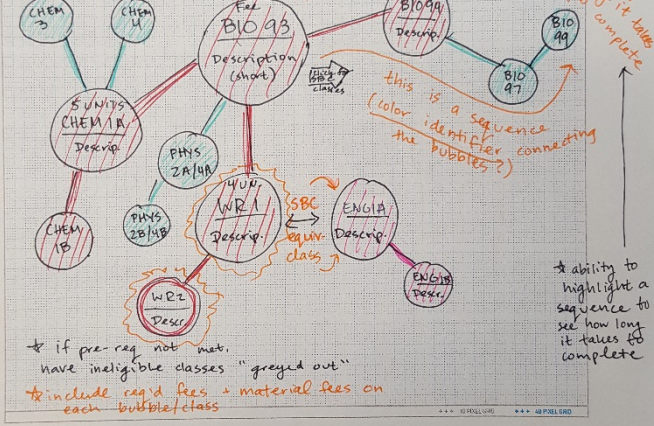 CHEM
3
CHEM
4
Fee
BIO 93
Description
(short)
BIO94
Descrip.
BIO
99
BIO
97
it takes
complete
classes
this is a sequence
(color identifier connecting
the bubbles?)
5 UNITS
CHEM 1A
Descrip.
PHYS
2A/4A
PHYS
2B/4B
CHEM
1B
4 UN.
WR1
Descrip.
SBC
equiv-
class
ENG1A
Descrip.
ENG1B
Descr.
WR2
Descr.
* ability to
highlight a
sequence to
see how long
it takes to
complete
* if pre-req not met,
have ineligible classes "greyed out"
* include req'd fees + material fees on
each bubble/class
+++ 10 PIXEL GRID
+++ 40 PIXEL GRID